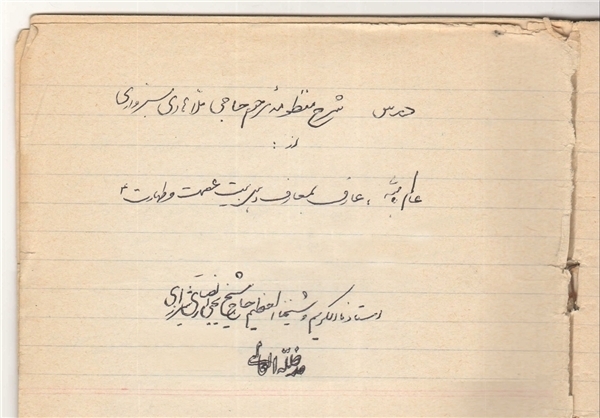 درس شرح منظومهٔ مرحوم حاجی ملا هادی سبزواری
از :
عالم بالله ، عارف بمعارف اهل بیت عصمت و طهارت ع
استادنا الکریم و شیخنا العظیم حاج شیخ یحیی انصاری شیرازی
مد ظله العالی